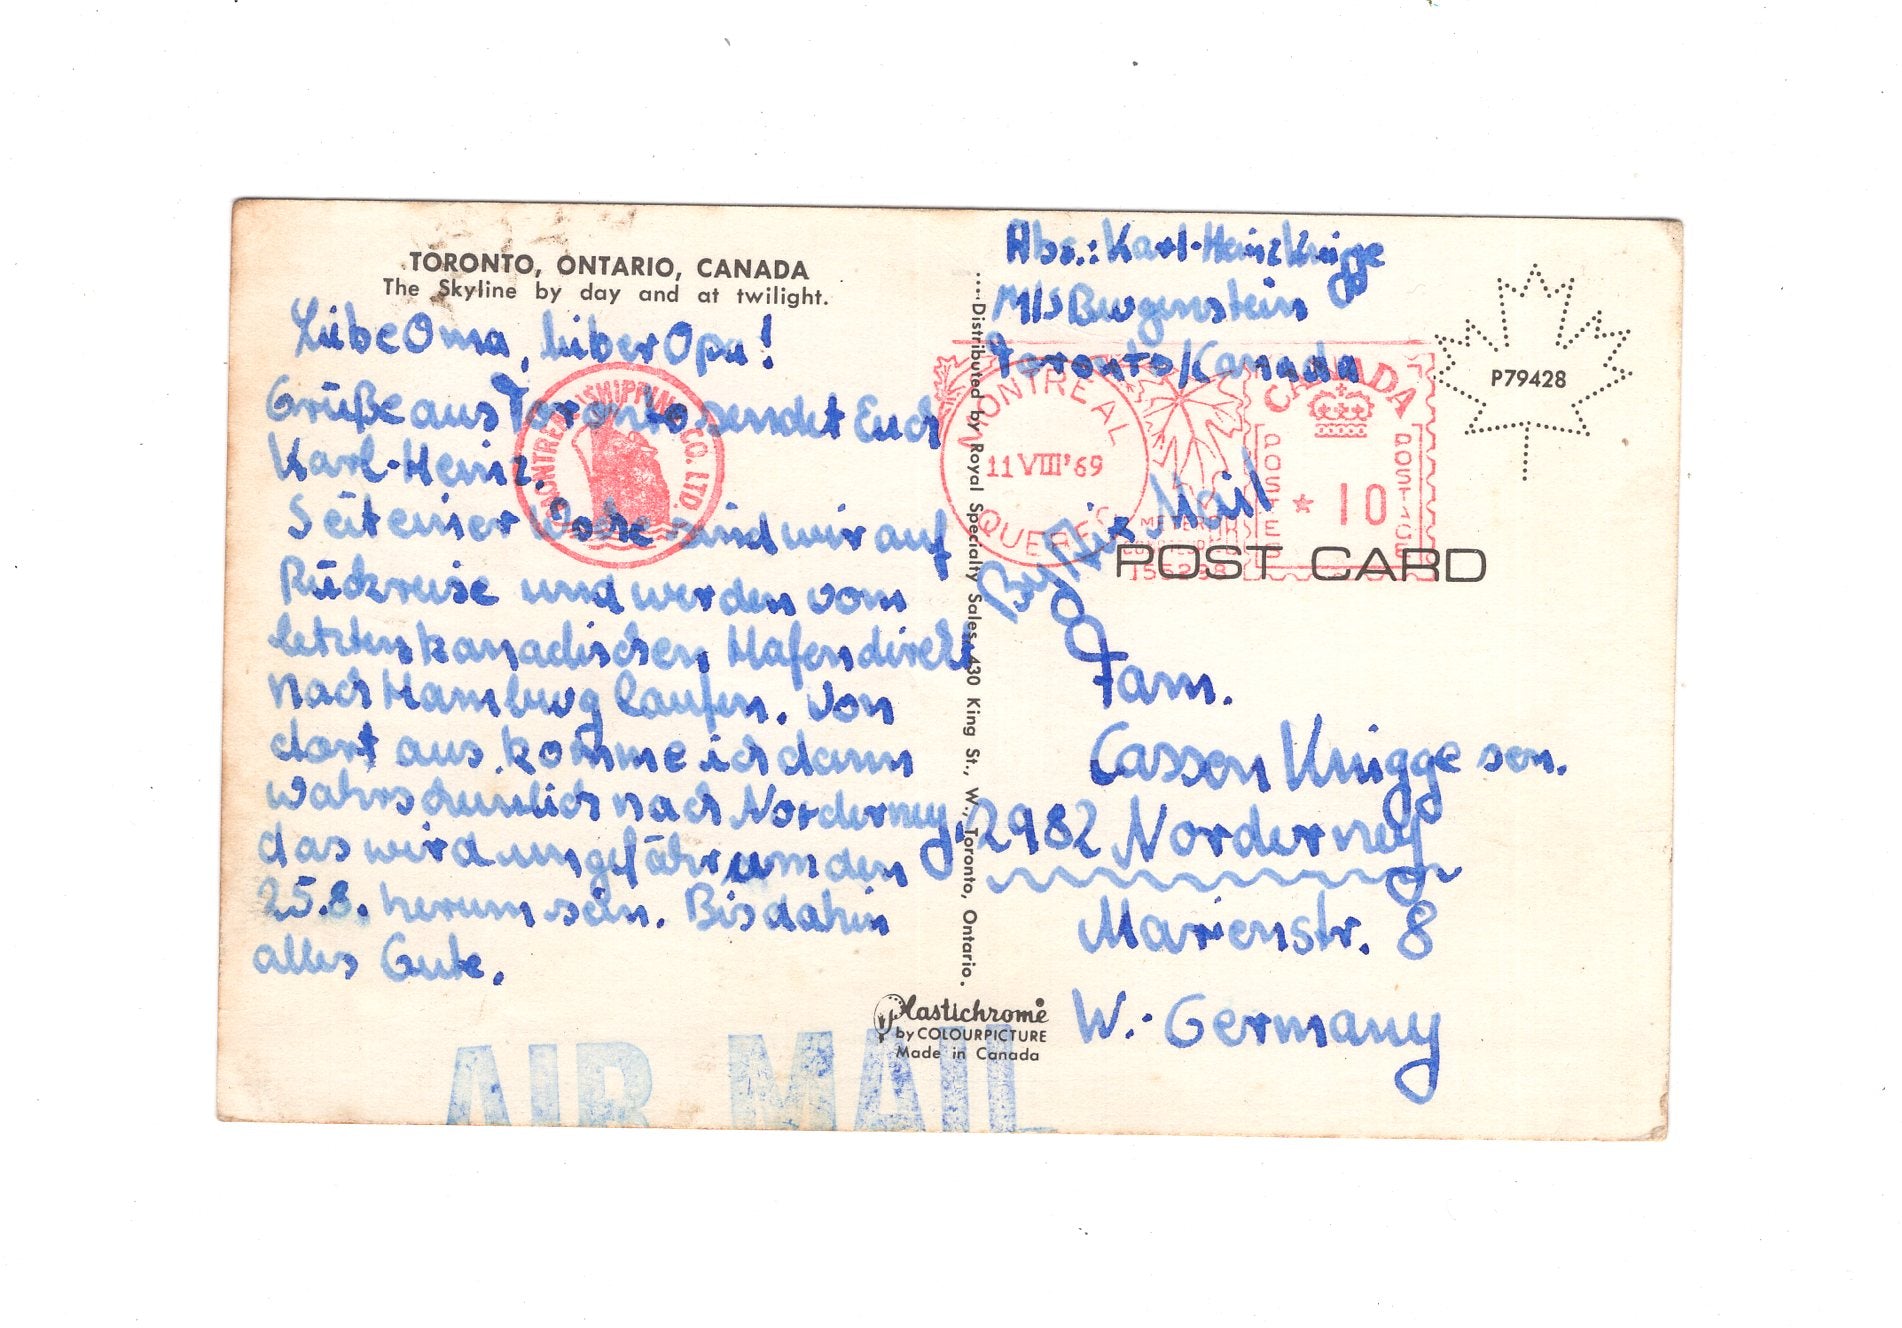 TORONTO, ONTARIO, CANADA
The Skyline by day and at twilight.
Liebe Oma, lieber Opa!
Grüße aus Toronto sendet Euch
Karl-Heinz.
Seit einer Woche sind wir auf
Rückreise und werden vom
letzten kanadischen Hafen direkt
nach Hamburg laufen. Von
dort aus komme ich dann
wahrscheinlich nach Norderney,
das wird ungefähr um den
25.8. herum sein. Bis dahin
alles Gute.
MONTREAL SHIPPING CO. LTD.
AIR MAIL
Distributed by Royal Specialty Sales, 430 King St., W., Toronto, Ontario.
Plastichrome
by COLOURPICTURE
Made in Canada
Abs.: Karl-Heinz Knigge
M/S Burgenstein
Toronto/Kanada
MONTREAL
11 VIII '69
QUEBEC
CANADA
POSTES
10
POSTAGE
METER
P79428
By Air Mail
POST CARD
Fam.
Casson Knigge sen.
2982 Norderney
Marienstr. 8
W.-Germany